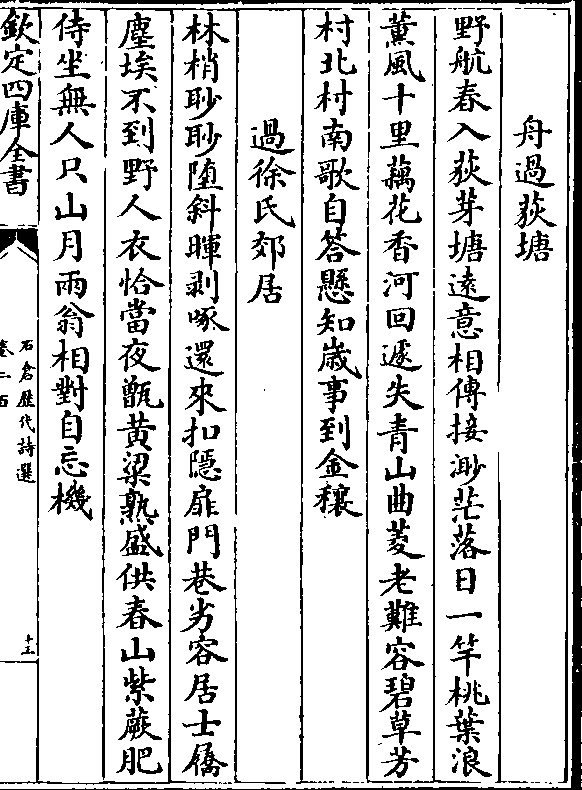 舟過荻塘
野航春入荻芽塘遠意相傳接渺茫落日一竿桃葉浪
薰風十里藕花香河回遽失青山曲菱老難容碧草芳
村北村南歌自答懸知歲事到金穰
過徐氏郊居
林梢耿耿墮斜暉剥啄還來扣隠扉門巷劣容居士屩
塵埃不到野人衣恰當夜甑黄粱熟盛供春山紫蕨肥
侍坐無人只山月兩翁相對自忘機
欽定四庫全書
石倉歴代詩選
卷二百
十三